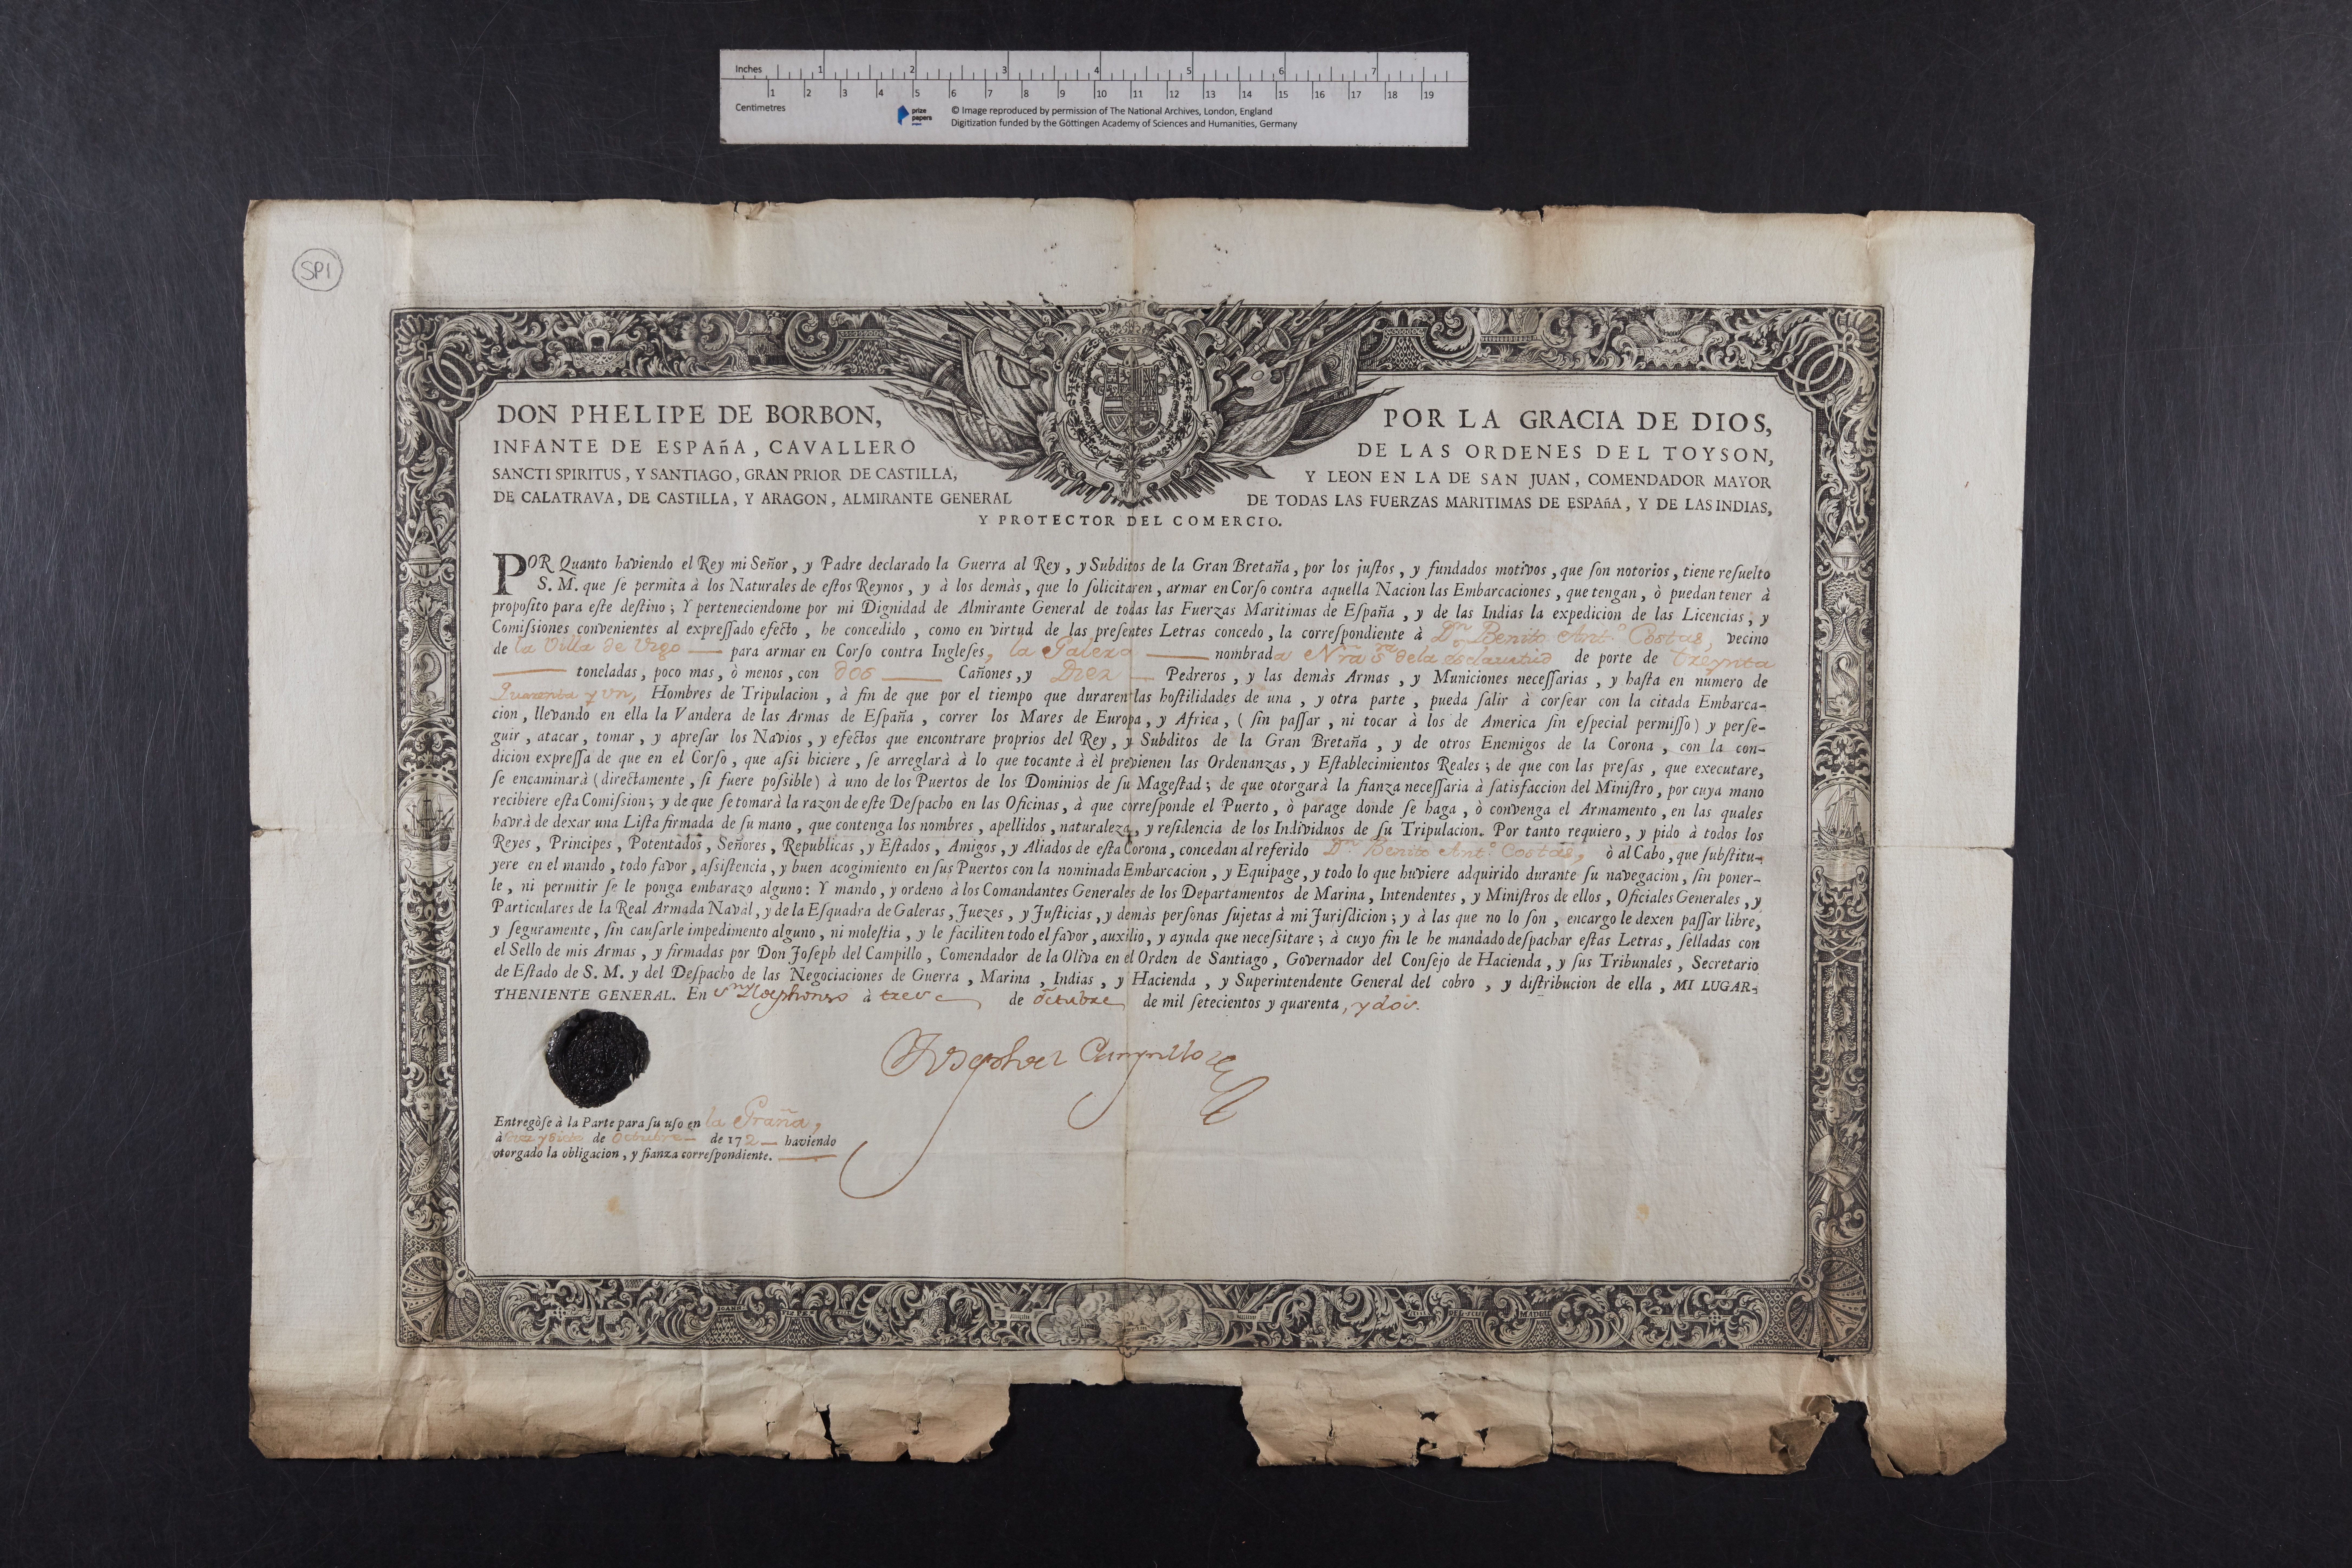 Inches 1 2 3 4 5 6 7
1 2 3 4 5 6 7 8 9 10 11 12 13 14 15 16 17 18 19
Centimetres
prize papers
© Image reproduced by permission of The National Archives, London, England
Digitization funded by the Göttingen Academy of Sciences and Humanities, Germany
SP1
DON PHELIPE DE BORBON, POR LA GRACIA DE DIOS,
INFANTE DE ESPAñA, CAVALLERO DE LAS ORDENES DEL TOYSON,
SANCTI SPIRITUS, Y SANTIAGO, GRAN PRIOR DE CASTILLA, Y LEON EN LA DE SAN JUAN, COMENDADOR MAYOR
DE CALATRAVA, DE CASTILLA, Y ARAGON, ALMIRANTE GENERAL DE TODAS LAS FUERZAS MARITIMAS DE ESPAñA, Y DE LAS INDIAS,
Y PROTECTOR DEL COMERCIO.
POR Quanto haviendo el Rey mi Señor, y Padre declarado la Guerra al Rey, y Subditos de la Gran Bretaña, por los justos, y fundados motivos, que ſon notorios, tiene reſuelto
S. M. que ſe permita à los Naturales de eſtos Reynos, y à los demàs, que lo ſolicitaren, armar en Corſo contra aquella Nacion las Embarcaciones, que tengan, ò puedan tener à
propoſito para eſte deſtino; Y perteneciendome por mi Dignidad de Almirante General de todas las Fuerzas Maritimas de Eſpaña, y de las Indias la expedicion de las Licencias, y
Comiſsiones convenientes al expreſſado efecto, he concedido, como en virtud de las preſentes Letras concedo, la correſpondiente à Dn. Benito Antº. Costas, vecino
de la Villa de Vigo para armar en Corſo contra Ingleſes, la Galera nombrada Nra. Sra. de la esclavitud de porte de treynta
toneladas, poco mas, ò menos, con dos Cañones, y Diez Pedreros, y las demàs Armas, y Municiones neceſſarias, y haſta en numero de
Quarenta y un, Hombres de Tripulacion, à fin de que por el tiempo que duraren las hoſtilidades de una, y otra parte, pueda ſalir à corſear con la citada Embarca-
cion, llevando en ella la Vandera de las Armas de Eſpaña, correr los Mares de Europa, y Africa, (ſin paſſar, ni tocar à los de America ſin eſpecial permiſſo) y perſe-
guir, atacar, tomar, y apreſar los Navios, y efectos que encontrare proprios del Rey, y Subditos de la Gran Bretaña, y de otros Enemigos de la Corona, con la con-
dicion expreſſa de que en el Corſo, que aſsi hiciere, ſe arreglarà à lo que tocante à èl previenen las Ordenanzas, y Eſtablecimientos Reales; de que con las preſas, que executare,
ſe encaminarà (directamente, ſi fuere poſsible) à uno de los Puertos de los Dominios de ſu Mageſtad; de que otorgarà la fianza neceſſaria à ſatisfaccion del Miniſtro, por cuya mano
recibiere eſta Comiſsion; y de que ſe tomarà la razon de eſte Deſpacho en las Oficinas, à que correſponde el Puerto, ò parage donde ſe haga, ò convenga el Armamento, en las quales
havrà de dexar una Liſta firmada de ſu mano, que contenga los nombres, apellidos, naturaleza, y reſidencia de los Individuos de ſu Tripulacion. Por tanto requiero, y pido à todos los
Reyes, Principes, Potentados, Señores, Republicas, y Eſtados, Amigos, y Aliados de eſta Corona, concedan al referido Dn. Benito Antº. Costas, ò al Cabo, que ſubſtitu-
yere en el mando, todo favor, aſsiſtencia, y buen acogimiento en ſus Puertos con la nominada Embarcacion, y Equipage, y todo lo que huviere adquirido durante ſu navegacion, ſin poner-
le, ni permitir ſe le ponga embarazo alguno: Y mando, y ordeno à los Comandantes Generales de los Departamentos de Marina, Intendentes, y Miniſtros de ellos, Oficiales Generales, y
Particulares de la Real Armada Navàl, y de la Eſquadra de Galeras, Juezes, y Juſticias, y demàs perſonas ſujetas à mi Juriſdicion; y à las que no lo ſon, encargo le dexen paſſar libre,
y ſeguramente, ſin cauſarle impedimento alguno, ni moleſtia, y le faciliten todo el favor, auxilio, y ayuda que neceſsitare; à cuyo fin le he mandado deſpachar eſtas Letras, ſelladas con
el Sello de mis Armas, y firmadas por Don Joſeph del Campillo, Comendador de la Oliva en el Orden de Santiago, Governador del Conſejo de Hacienda, y ſus Tribunales, Secretario
de Eſtado de S. M. y del Deſpacho de las Negociaciones de Guerra, Marina, Indias, y Hacienda, y Superintendente General del cobro, y diſtribucion de ella, MI LUGAR-
THENIENTE GENERAL. En Sn. Yldephonso à trece de octubre de mil ſetecientos y quarenta, y dos.
Joseph del Campillo
Entregòſe à la Parte para ſu uſo en la Graña,
à de Octubre de 17 haviendo
otorgado la obligacion, y fianza correſpondiente.